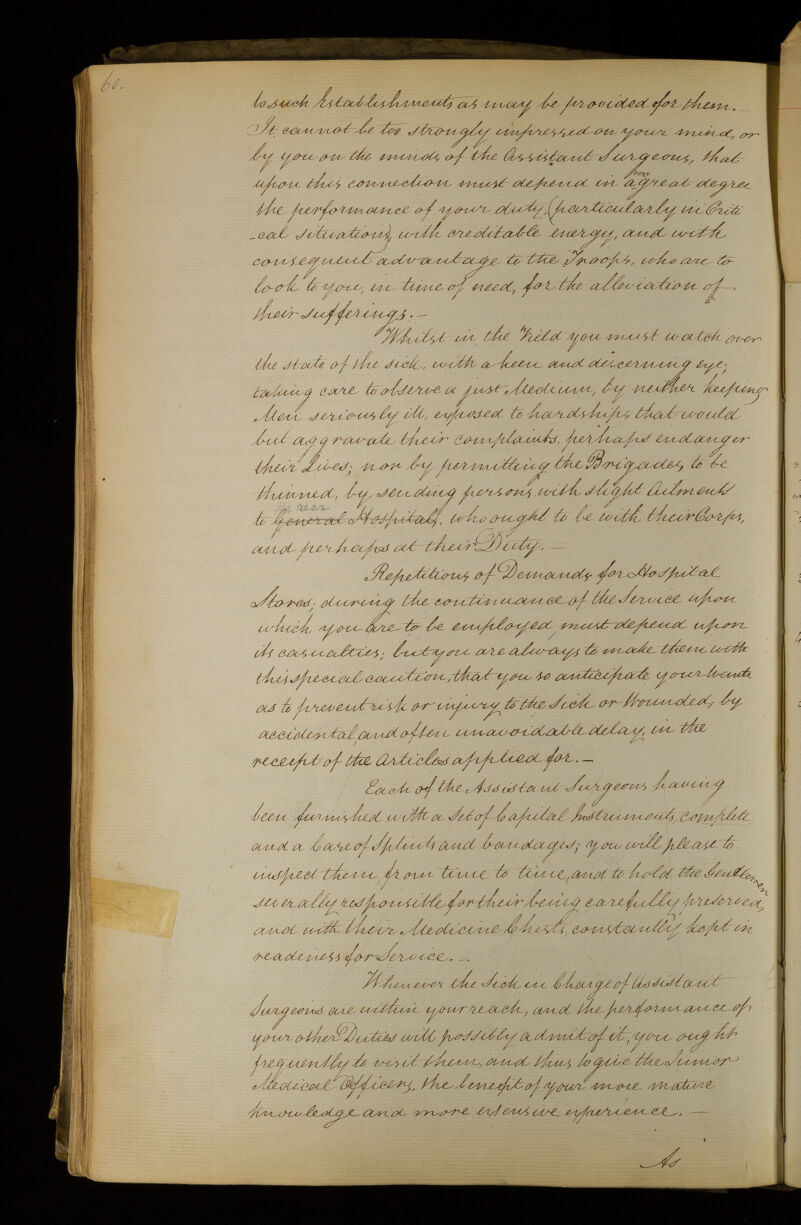 60.
to such Establishments as may be provided for them. —
It cannot be too strongly impressed on your mind, or
by you on the minds of the Assistant Surgeons, that
upon this connection must depend in a great degree
the performance of your duty, (particularly in Criti
-cal situations) with creditable energy, and with
consequent advantage to the Troops, who are to
look to you, in time of need, for the alleviation of
their sufferings. —
Whilst in the Field you must watch over
the state of the sick, with a keen and discerning eye;
taking care to observe a just Medium, by neither keeping
Men seriously ill, exposed to hardships that would
but aggravate their complaints, perhaps endanger
their Lives; nor by permitting the Brigades, to be
thinned, by sending persons with slight Ailments
to the rear General Hospitals, who ought to be with their Corps,
and perhaps at their Duty. —
Repetitions of Demands for Hospital
Stores, during the continuance of the Service upon
which you are to be employed, must depend upon
its casualties; but you are always to make them with
this special caution, that you so anticipate your Wants,
as to prevent risk or injury to the Sick or Wounded, by
accidental, and often unavoidable delay, in the
receipt of the Articles applied for. —
Each of the Assistant Surgeons having
been furnished with a Set of Capital Instruments, complete
and a Case of Splints and bandages; you will please to
inspect them from time to time, and to hold the Gentlemen
severally responsible for their being carefully preserved,
and with their Medicine Chests, constantly kept in
readiness for Service. —
Whenever the Sick in Charge of Assistant
Surgeons are within your reach, and the performance of
your other Duties will possibly admit of it, you ought
frequently to visit them, and thus to give the Junior
Medical Officers, the benefit of your more mature
knowledge and more extensive experience. —
As